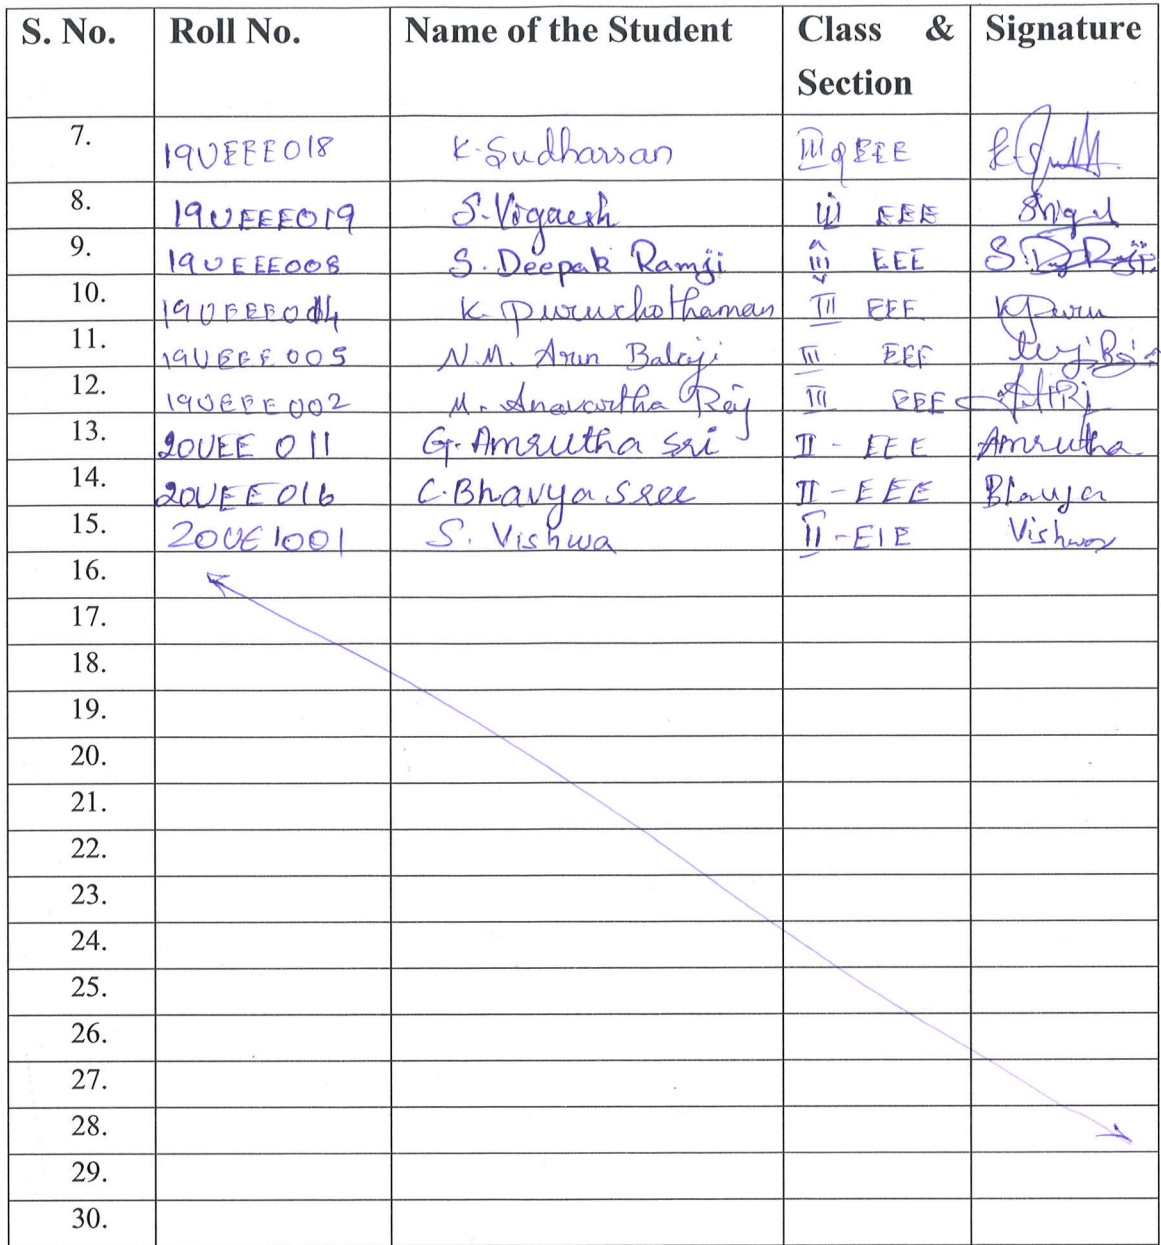 S. No. Roll No. Name of the Student Class & Signature
Section
7. 19UEEE018 K. Sudharsan III EEE
8. 19UEEE019 S. Vigaesh III EEE
9. 19UEEE008 S. Deepak Ramji III EEE
10. 19UEEE014 K. Puruchothaman III EEE KPuru
11. 19UEEE005 N.M. Arun Balaji III EEE
12. 19UEEE002 M. Anavartha Raj III EEE
13. 20UEE 011 G. Amrutha Sri II - EEE Amrutha
14. 20UEE016 C. Bhavya Sree II - EEE Bhavya
15. 20UEI001 S. Vishwa II - EIE Vishwa
16.
17.
18.
19.
20.
21.
22.
23.
24.
25.
26.
27.
28.
29.
30.